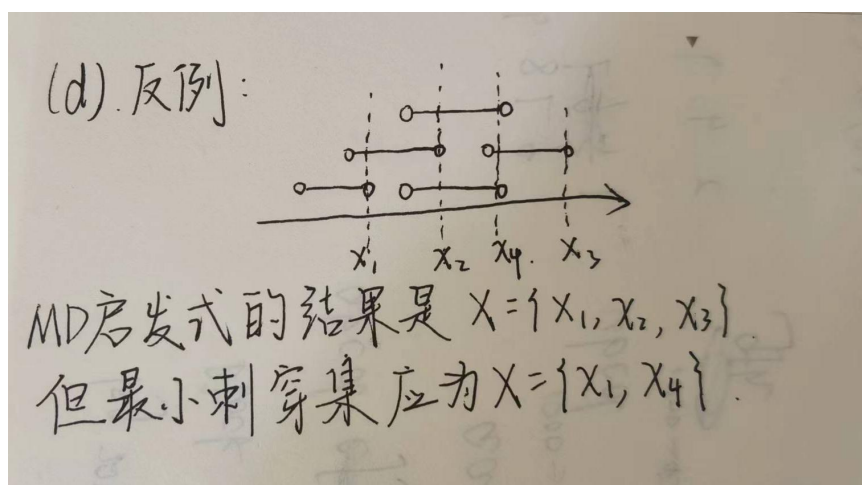 (d). 反例:
x₁ x₂ x₄. x₃
MD启发式的结果是 X={x₁, x₂, x₃}
但最小刺穿集应为X={x₁, x₄}.